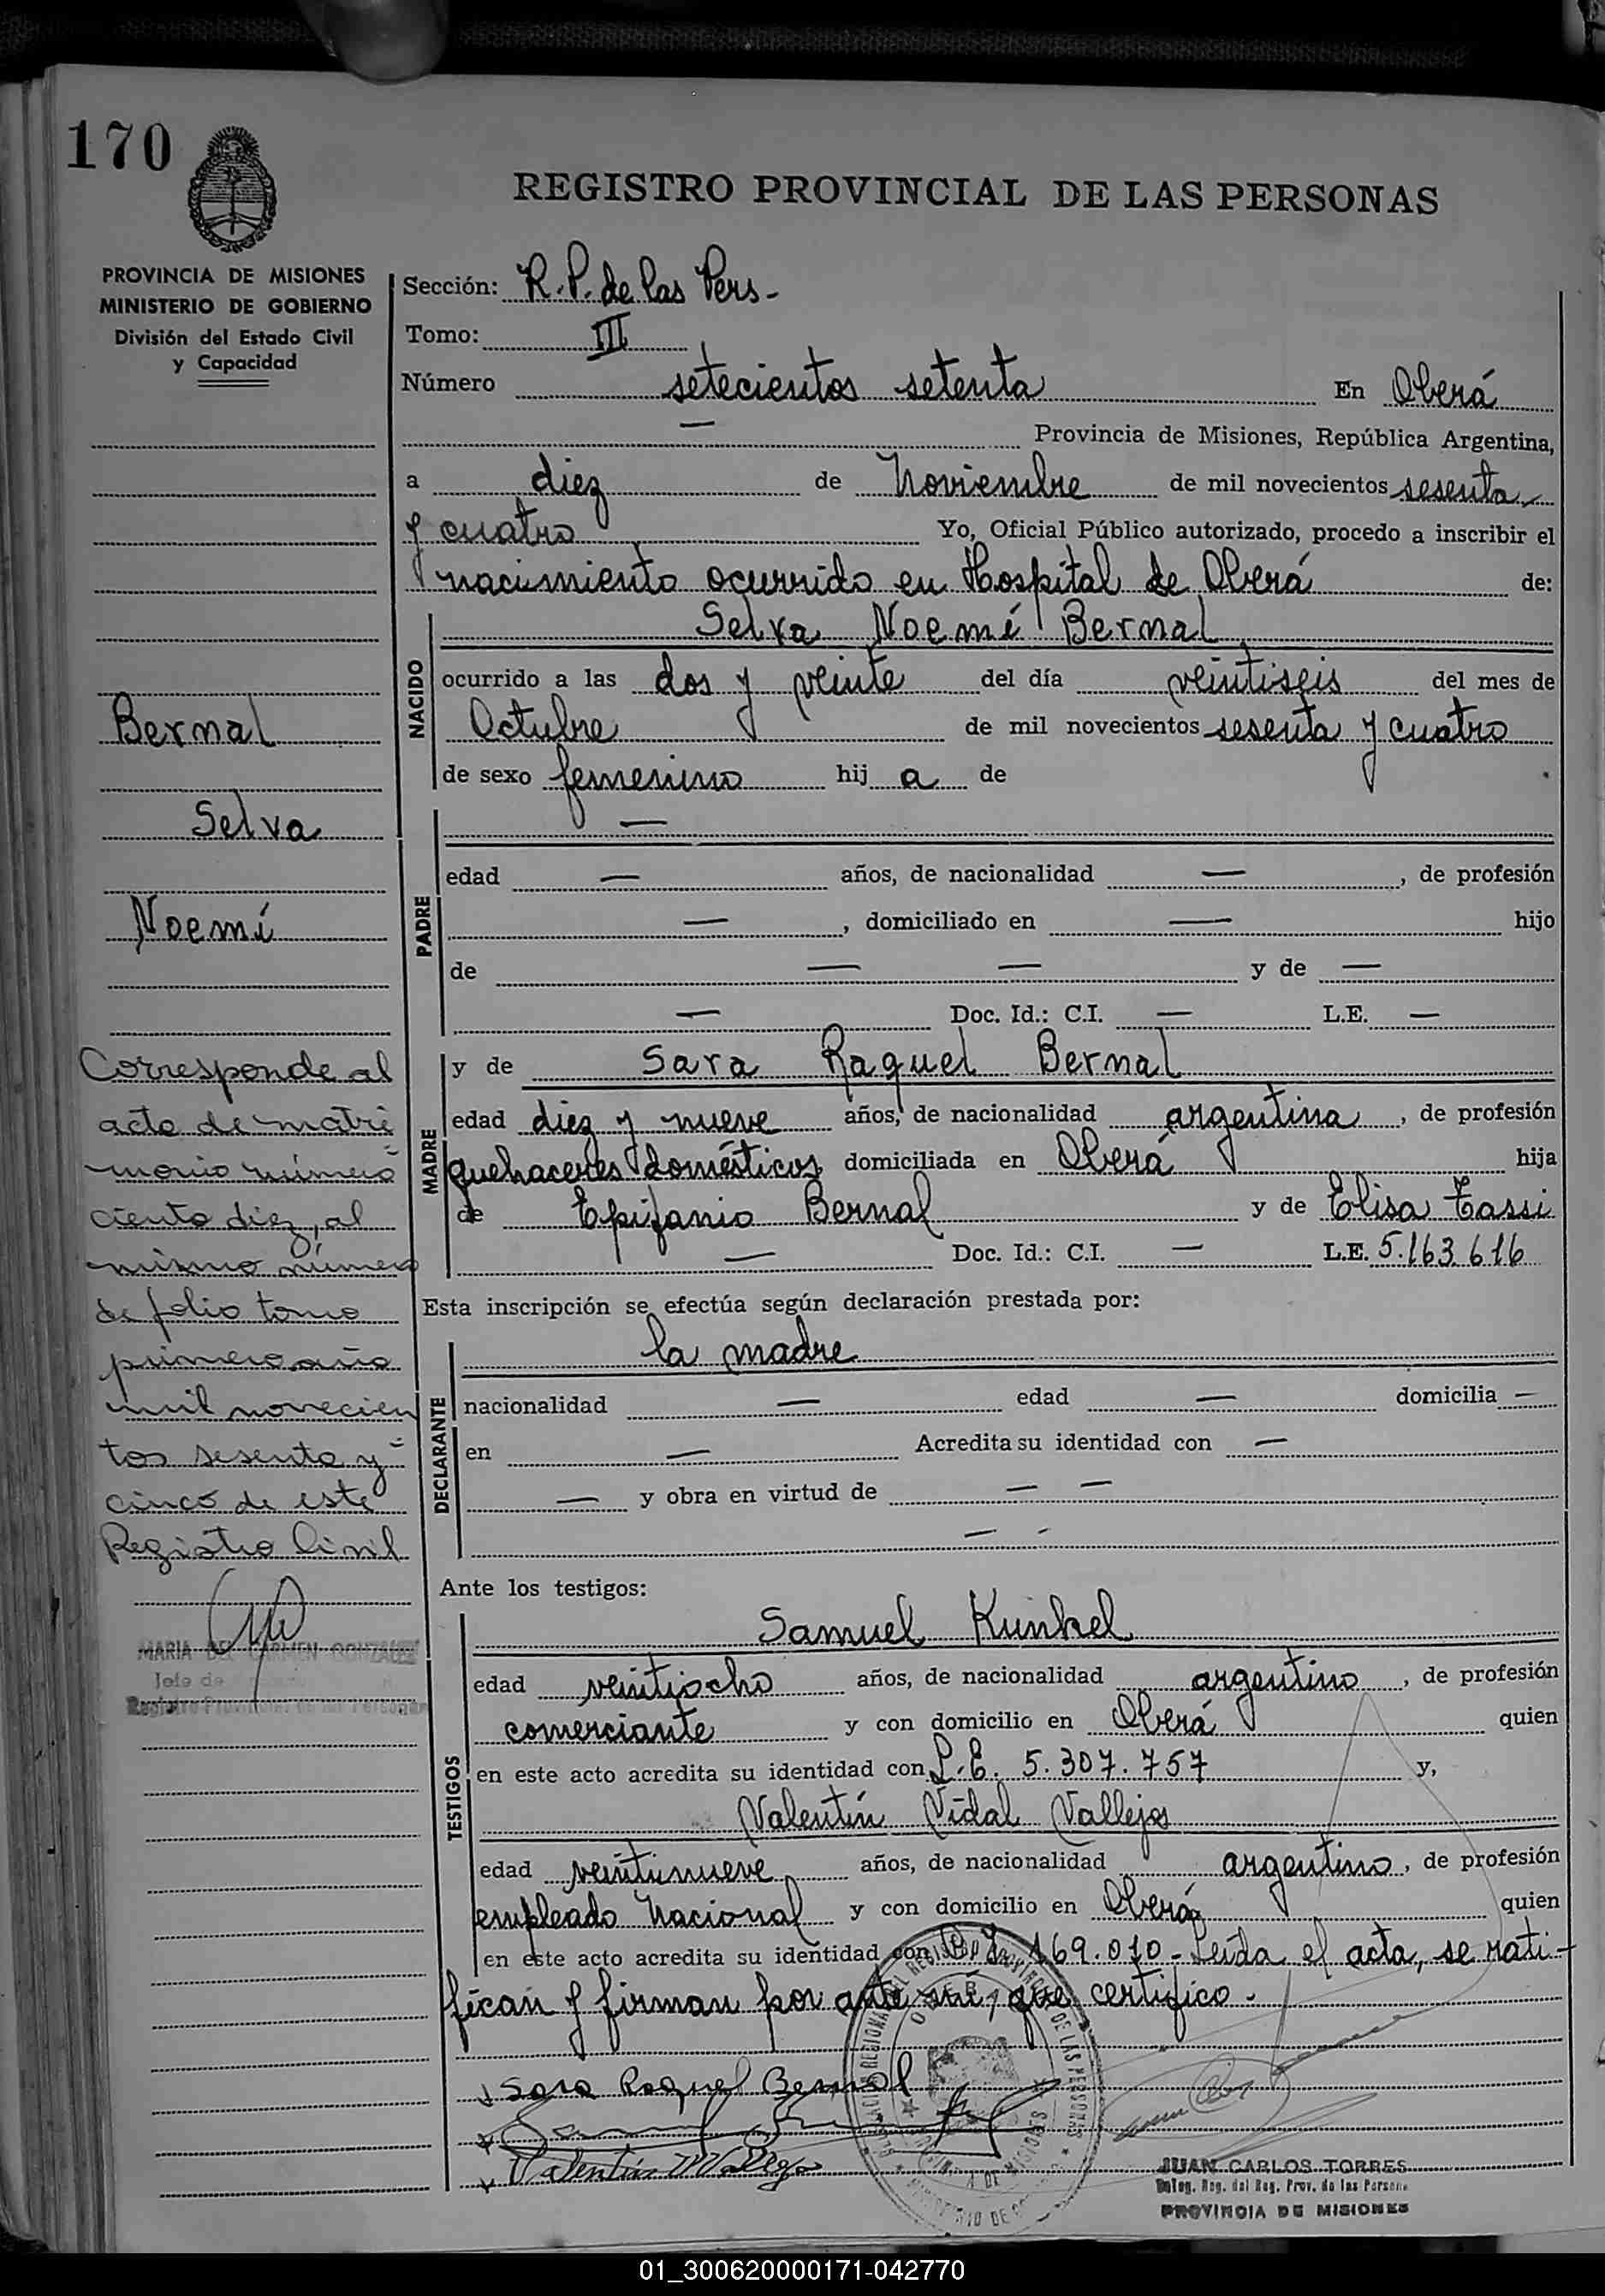 170
REGISTRO PROVINCIAL DE LAS PERSONAS
PROVINCIA DE MISIONES
MINISTERIO DE GOBIERNO
División del Estado Civil
y Capacidad
Sección: R.P. de las Pers-
Tomo: III
Número setecientos setenta En Oberá
— Provincia de Misiones, República Argentina,
a diez de Noviembre de mil novecientos sesenta
y cuatro Yo, Oficial Público autorizado, procedo a inscribir el
nacimiento ocurrido en Hospital de Oberá de:
NACIDO
Selva Noemí Bernal
ocurrido a las dos y veinte del día veintiseis del mes de
Octubre de mil novecientos sesenta y cuatro
de sexo femenino hij a de
PADRE
—
edad — años, de nacionalidad —, de profesión
—, domiciliado en — hijo
de — — y de —
— Doc. Id.: C.I. — L.E. —
MADRE
y de Sara Raquel Bernal
edad diez y nueve años, de nacionalidad argentina, de profesión
quehaceres domésticos domiciliada en Oberá hija
de Epifanio Bernal y de Elisa Tassi
— Doc. Id.: C.I. — L.E. 5.163.616
Esta inscripción se efectúa según declaración prestada por:
DECLARANTE
la madre
nacionalidad — edad — domicilia —
en — Acredita su identidad con —
— y obra en virtud de — —
— -
Ante los testigos:
TESTIGOS
Samuel Kunkel
edad veintiocho años, de nacionalidad argentino, de profesión
comerciante y con domicilio en Oberá quien
en este acto acredita su identidad con L.E. 5.307.757 y,
Valentín Vidal Vallejos
edad veintinueve años, de nacionalidad argentino, de profesión
empleado Nacional y con domicilio en Oberá quien
en este acto acredita su identidad con 169.010 - Leída el acta, se rati-
fican y firman por ante mí, que certifico.
Sara Raquel Bernal
Valentín V Vallejos
JUAN CARLOS TORRES
Deleg. Reg. del Reg. Prov. de las Persona
PROVINCIA DE MISIONES
Bernal
Selva
Noemí
Corresponde al
acta de matri
monio número
ciento diez, al
mismo número
de folio tomo
primero año
mil novecien
tos sesenta y
cinco de este
Registro Civil
MARIA DEL CARMEN GONZALEZ
Jefe de
Registro Provincial de las Personas
01_300620000171-042770